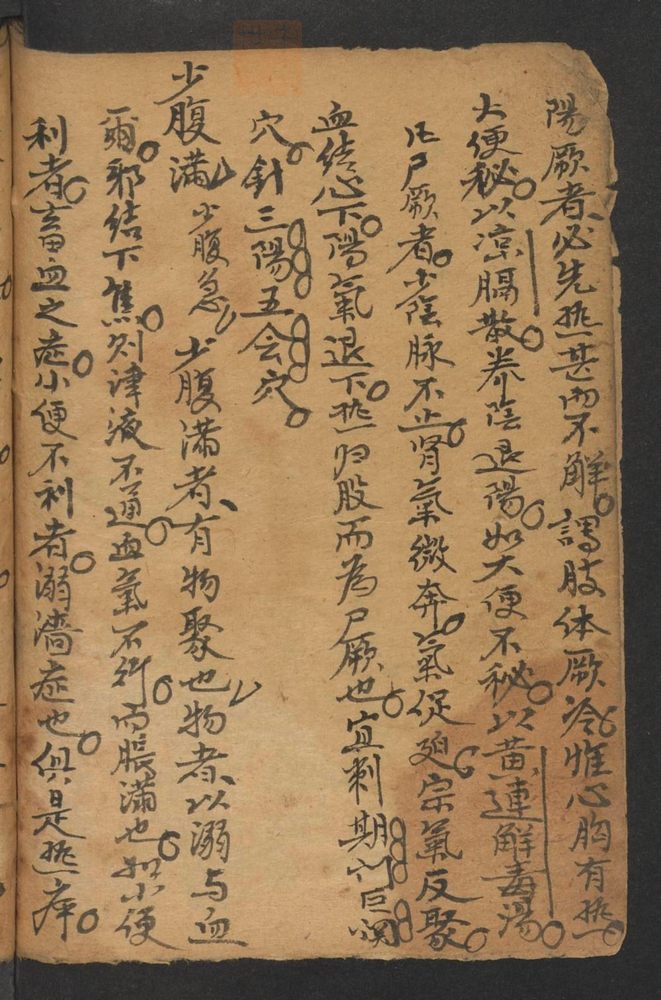 陽厥者必先热甚而不解謂肢体厥冷惟心胸有热
大便秘以凉膈散养陰退陽如大便不秘以黄連解毒湯
凡尸厥者少陰脉不止肾氣微奔氣促廹宗氣反聚
血结心下陽氣退下热归股而為尸厥也宜刺期门巨闕
穴針三陽五会穴
少腹满 少腹急 少腹满者有物聚也物者以溺与血
爾邪结下焦则津液不通血氣不行而脹满也如小便
利者畜血之症小便不利者溺濇症也俱是热